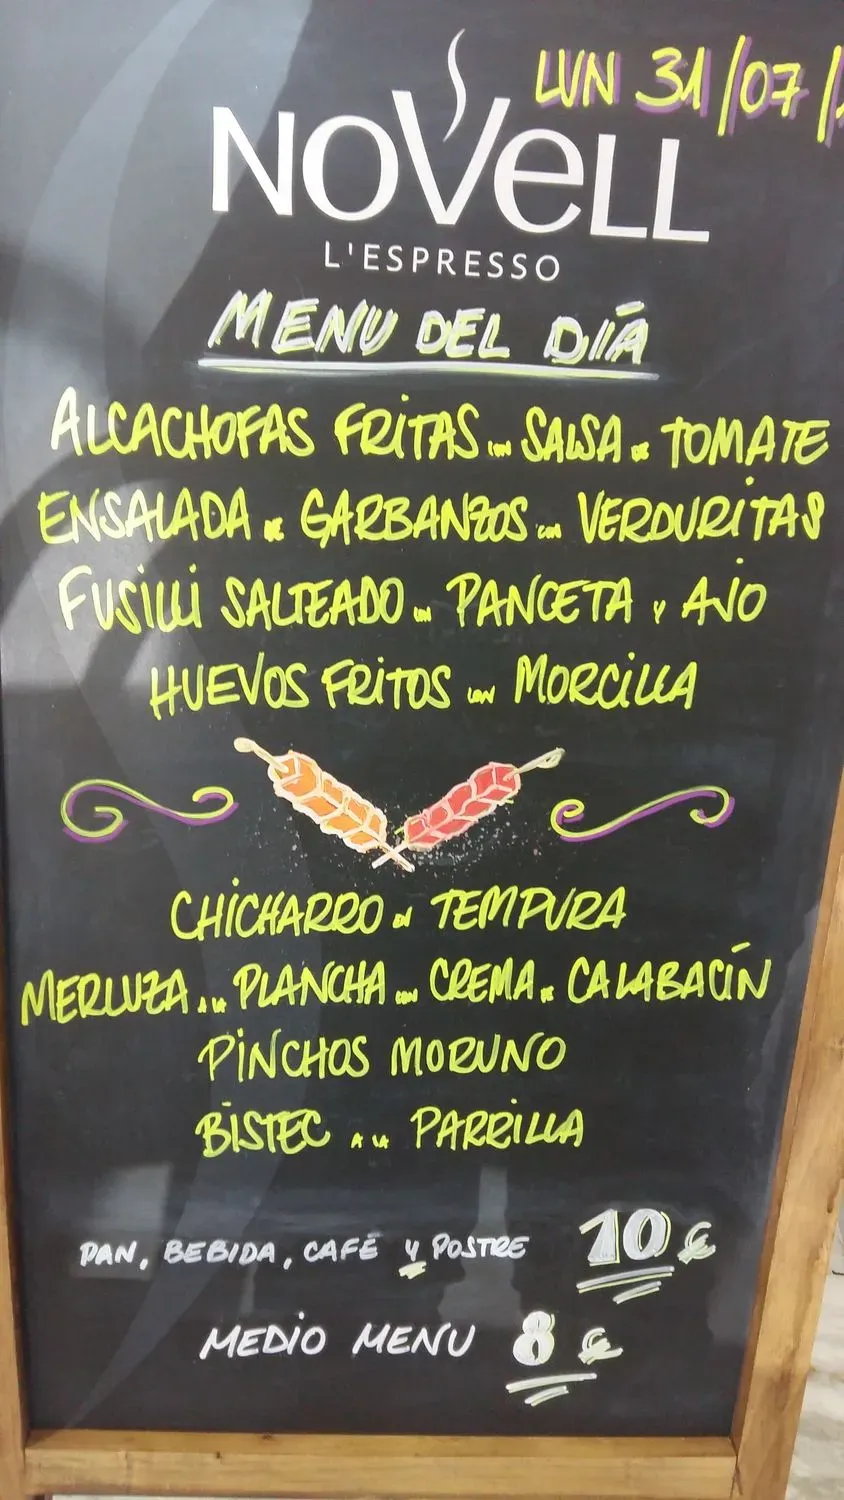 LUN 31/07/
NOVELL
L'ESPRESSO
MENU DEL DÍA
ALCACHOFAS FRITAS CON SALSA DE TOMATE
ENSALADA DE GARBANZOS CON VERDURITAS
FUSILLI SALTEADO CON PANCETA Y AJO
HUEVOS FRITOS CON MORCILLA
CHICHARRO EN TEMPURA
MERLUZA A LA PLANCHA CON CREMA DE CALABACÍN
PINCHOS MORUNO
BISTEC A LA PARRILLA
PAN, BEBIDA, CAFÉ Y POSTRE 10 €
MEDIO MENU 8 €